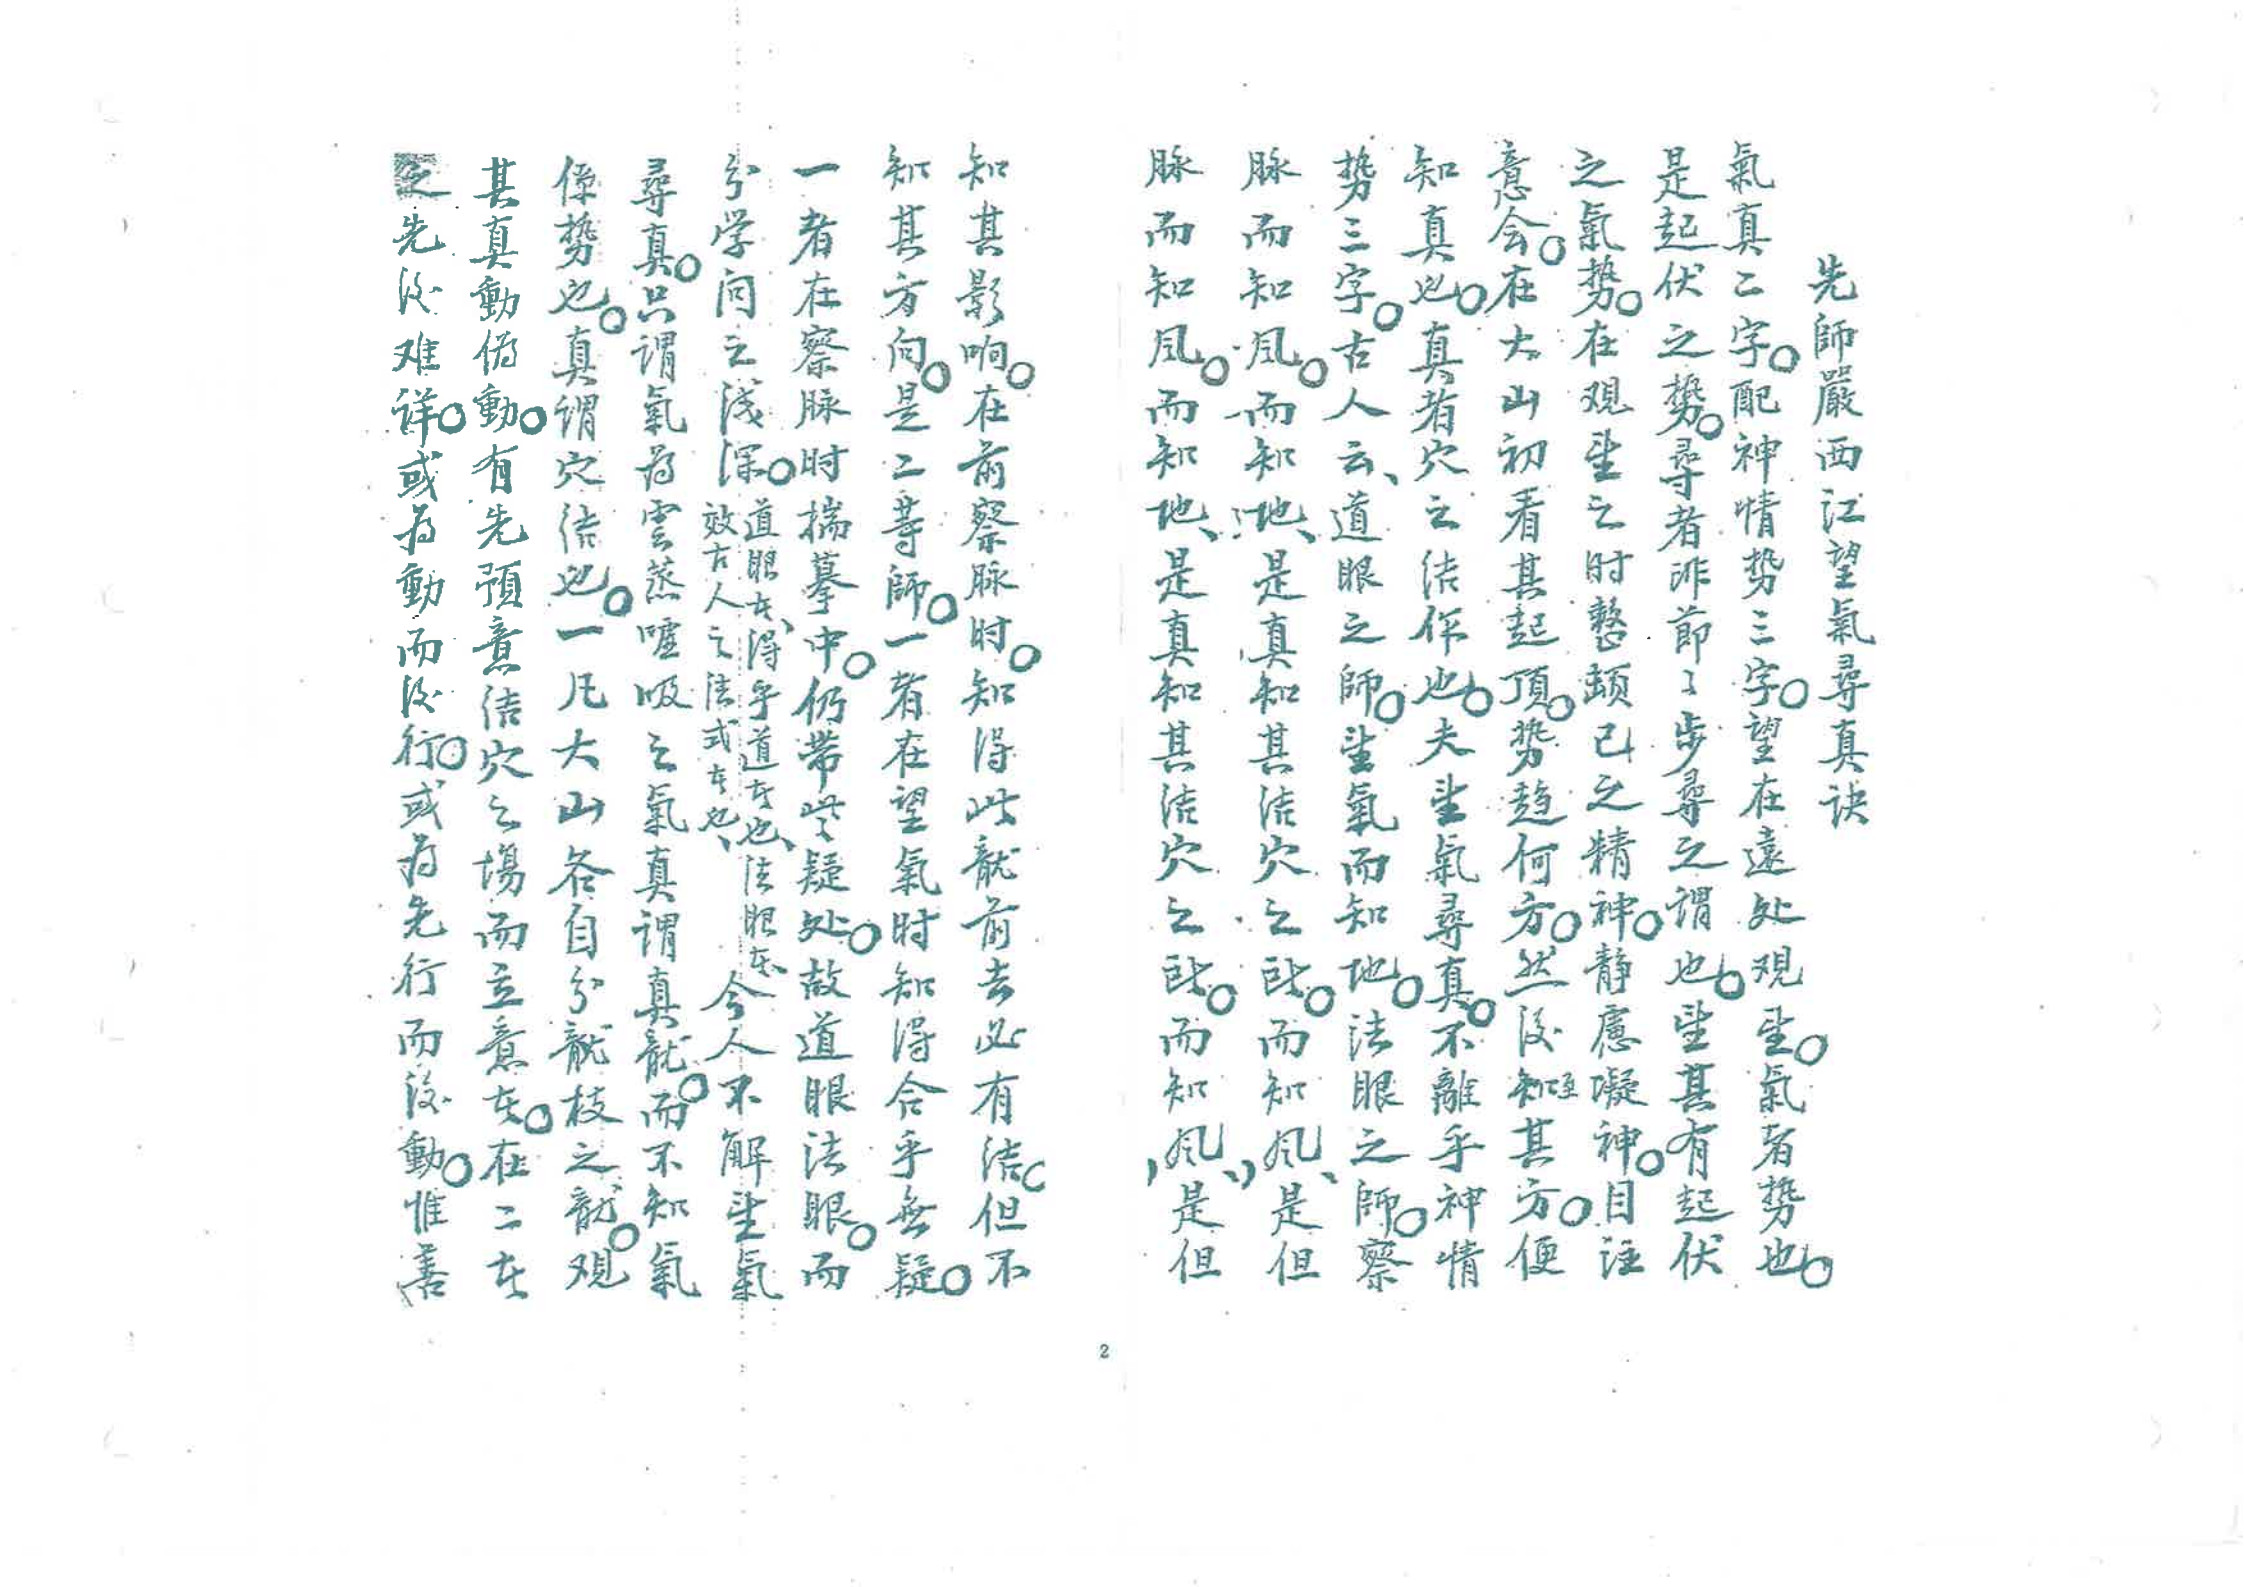 先師嚴西江望氣尋真诀
氣真二字。配神情势三字。望在遠处观望。氣者势也。
是起伏之势。尋者非節々步尋之謂也。望其有起伏
之氣势。在观望之时整頓己之精神。静慮凝神。目注
意会。在大山初看其起頂。势趋何方。然後知至其方。便
知真也。真者穴之结作也。夫望氣尋真。不離乎神情
势三字。古人云、道眼之師。望氣而知地。法眼之師。察
脉而知风。而知地、是真知其结穴之所。而知风、是但
脉而知风。而知地、是真知其结穴之所。而知风、是但
知其影响。在前察脉时。知得此龍前去必有结。但不
知其方向。是二等師。一者在望氣时知得合乎無疑。
一者在察脉时揣摹中。仍带些疑处。故道眼法眼。而
分学问之浅深。道眼者、得乎道者也、法眼者、效古人之法式者也、今人不解望氣
尋真。只謂氣為雲蒸嘘吸之氣真謂真龍。而不知氣
係势也。真謂穴结也。一凡大山各自分龍枝之龍。观
其真動偽動。有先預意结穴之場而立意者。在二者
之先後难详。或為動而後行。或為先行而後動。惟善
2